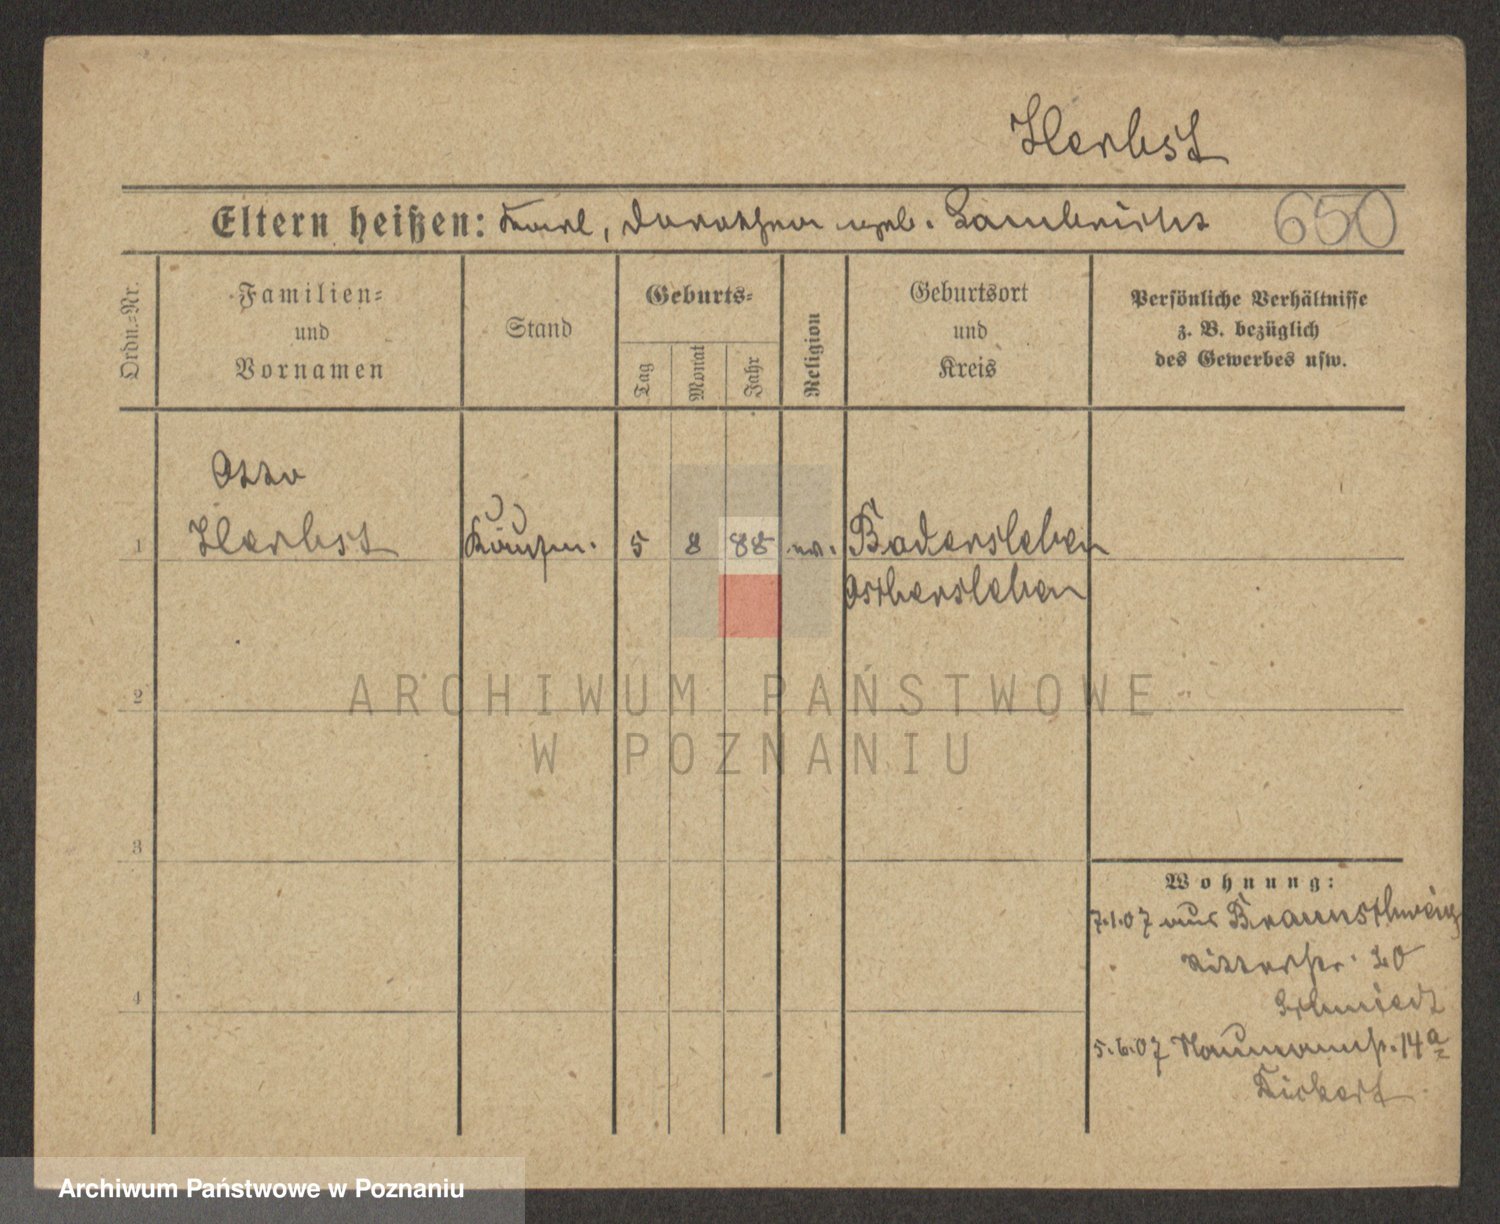 Herbst
Eltern heißen: Karl, Dorothea geb. Lambrecht 650
Ordn.-Nr.
Familien-
und
Vornamen
Stand
Geburts-
Tag
Monat
Jahr
Religion
Geburtsort
und
Kreis
Persönliche Verhältnisse
z. B. bezüglich
des Gewerbes usw.
Otto
1 Herbst Kaufm. 5 8 88 ev. Badersleben
Oschersleben
2
ARCHIWUM PAŃSTWOWE
W POZNANIU
3
Wohnung:
7.1.07 aus Braunschweig
Ritterstr. 20
Schmiedt
4
5.6.07 Naumannstr. 14a
Archiwum Państwowe w Poznaniu